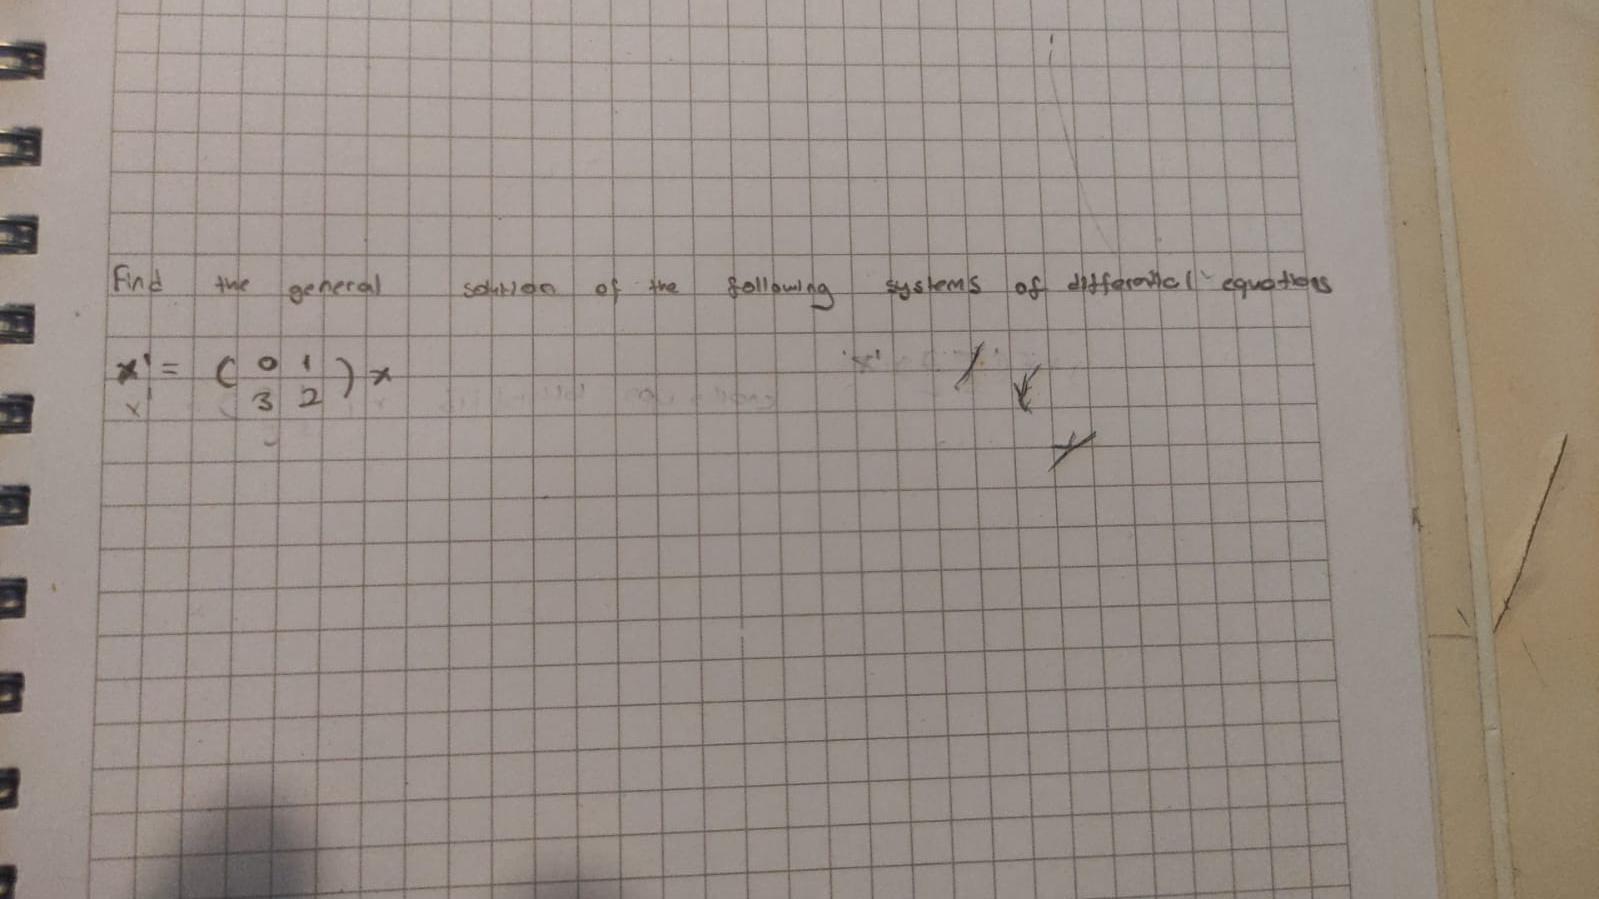 Find the general solution of the following systems of differential equations
x' = ( 0 1 ) x
3 2
x'